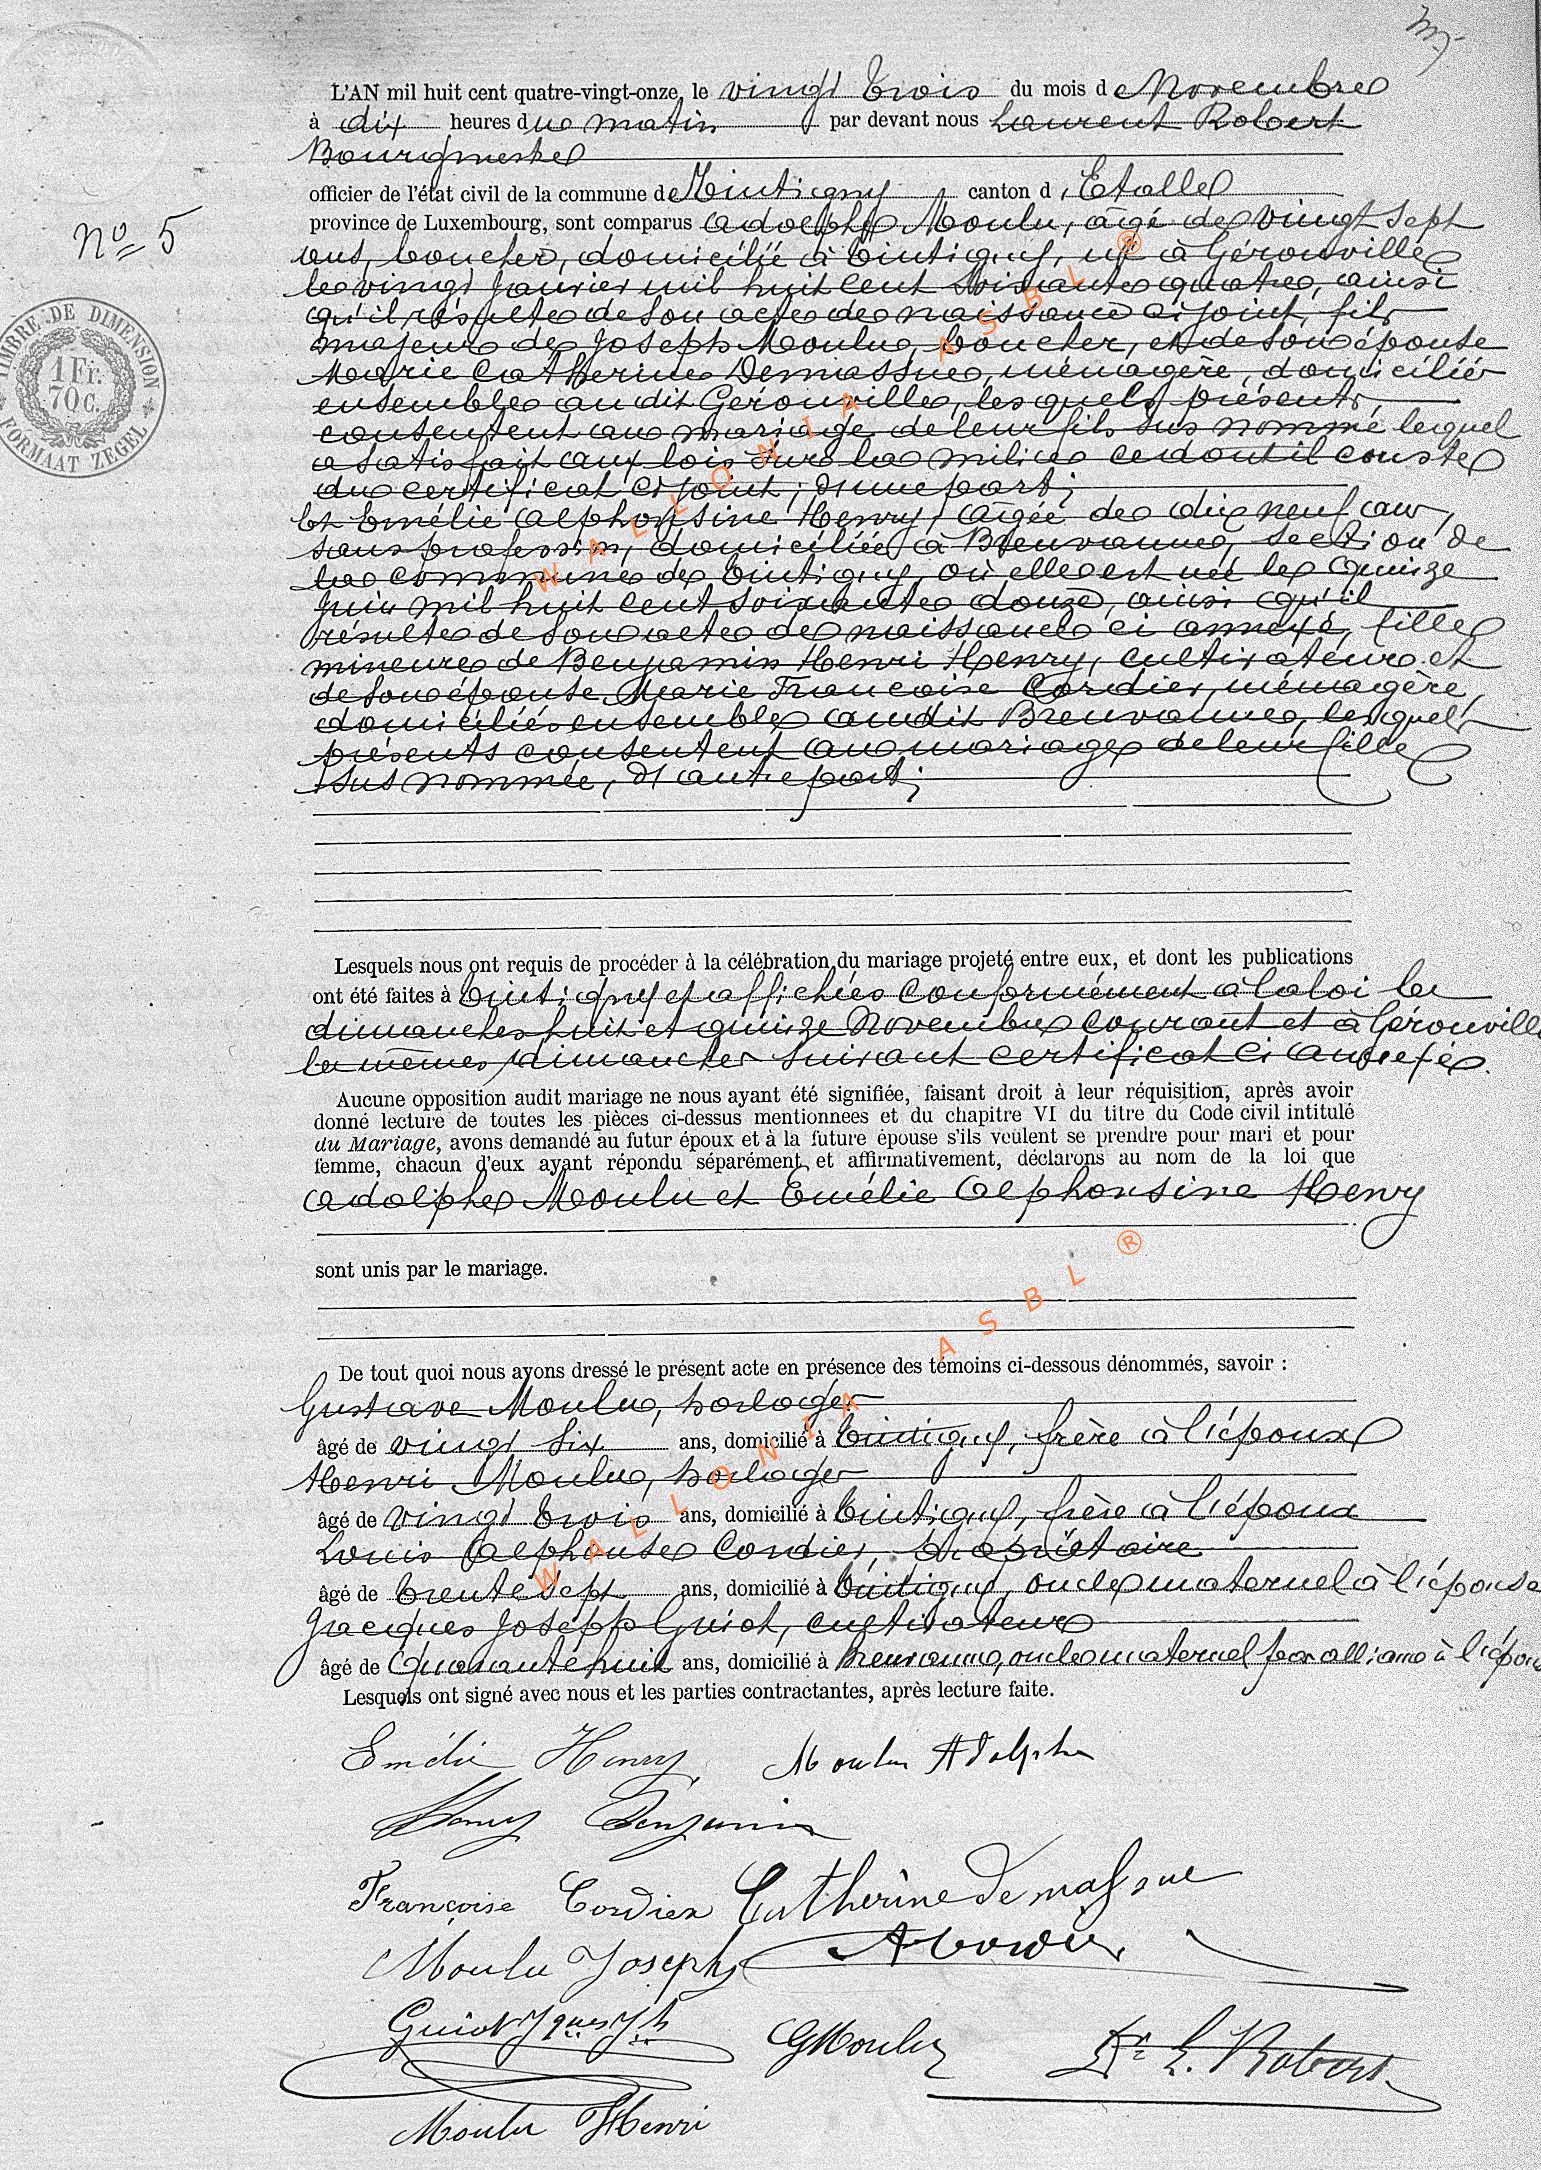 L'AN mil huit cent quatre-vingt-onze, le vingt trois du mois de Novembre
à dix heures du matin par devant nous Laurent Robert
Bourgmestre
officier de l'état civil de la commune de Tintigny canton d'Etalle
province de Luxembourg, sont comparus Adolphe Moulu, âgé de vingt sept
ans, boucher, domicilié à Tintigny, né à Gérouville
le vingt janvier mil huit cent soixante quatre, ainsi
qu'il résulte de son acte de naissance ci joint, fils
majeur de Joseph Moulu, boucher, et de son épouse
Marie Catherine Demassue, ménagère, domiciliés
ensemble au dit Gerouville, les quels présents,
consentent au mariage de leur fils sus nommé lequel
a satisfait aux lois sur la milice ce dont il conste
du certificat ci joint; d'une part;
Et Emélie Alphonsine Henry, âgée de dix neuf ans,
sans profession, domiciliée à Breuvanne, section de
la commune de Tintigny, où elle est née le quinze
juin mil huit cent soixante douze, ainsi qu'il
résulte de son acte de naissance ci annexé, fille
mineure de Benjamin Henri Henry, cultivateur et
de son épouse Marie Françoise Cordier, ménagère,
domiciliés ensemble audit Breuvanne, lesquels
présents consentent au mariage de leur fille
sus nommée, d'autre part;
Lesquels nous ont requis de procéder à la célébration du mariage projeté entre eux, et dont les publications
ont été faites à Tintigny et affichées conformément à la loi les
dimanches huit et quinze Novembre courant et à Gérouville
les mêmes dimanches suivant certificat ci annexé.
Aucune opposition audit mariage ne nous ayant été signifiée, faisant droit à leur réquisition, après avoir
donné lecture de toutes les pièces ci-dessus mentionnees et du chapitre VI du titre du Code civil intitulé
du Mariage, avons demandé au futur époux et à la future épouse s'ils veulent se prendre pour mari et pour
femme, chacun d'eux ayant répondu séparément et affirmativement, déclarons au nom de la loi que
Adolphe Moulu et Emélie Alphonsine Henry
sont unis par le mariage.
De tout quoi nous avons dressé le présent acte en présence des témoins ci-dessous dénommés, savoir :
Gustave Moulu, horloger
âgé de vingt six ans, domicilié à Tintigny, frère à l'époux
Henri Moulu, horloger
âgé de vingt trois ans, domicilié à Tintigny, frère à l'époux
Louis Alphonse Cordier, propriétaire
âgé de trente sept ans, domicilié à Tintigny, oncle maternel à l'épouse
Jacques Joseph Guiot, cultivateur
âgé de Quarante huit ans, domicilié à Breuvanne, oncle maternel par alliance à l'épouse
Lesquels ont signé avec nous et les parties contractantes, après lecture faite.
Emélie Henry Moulu Adolphe
Henry Benjamin
Françoise Cordier Catherine Demassue
Moulu Joseph ACordier
Guiot Jques Jph GMoulu Dr L. Robert
Moulu Henri
No 5
TIMBRE DE DIMENSION
1 Fr.
70 C.
FORMAAT ZEGEL
WALLONIA ASBL ®
WALLONIA ASBL ®